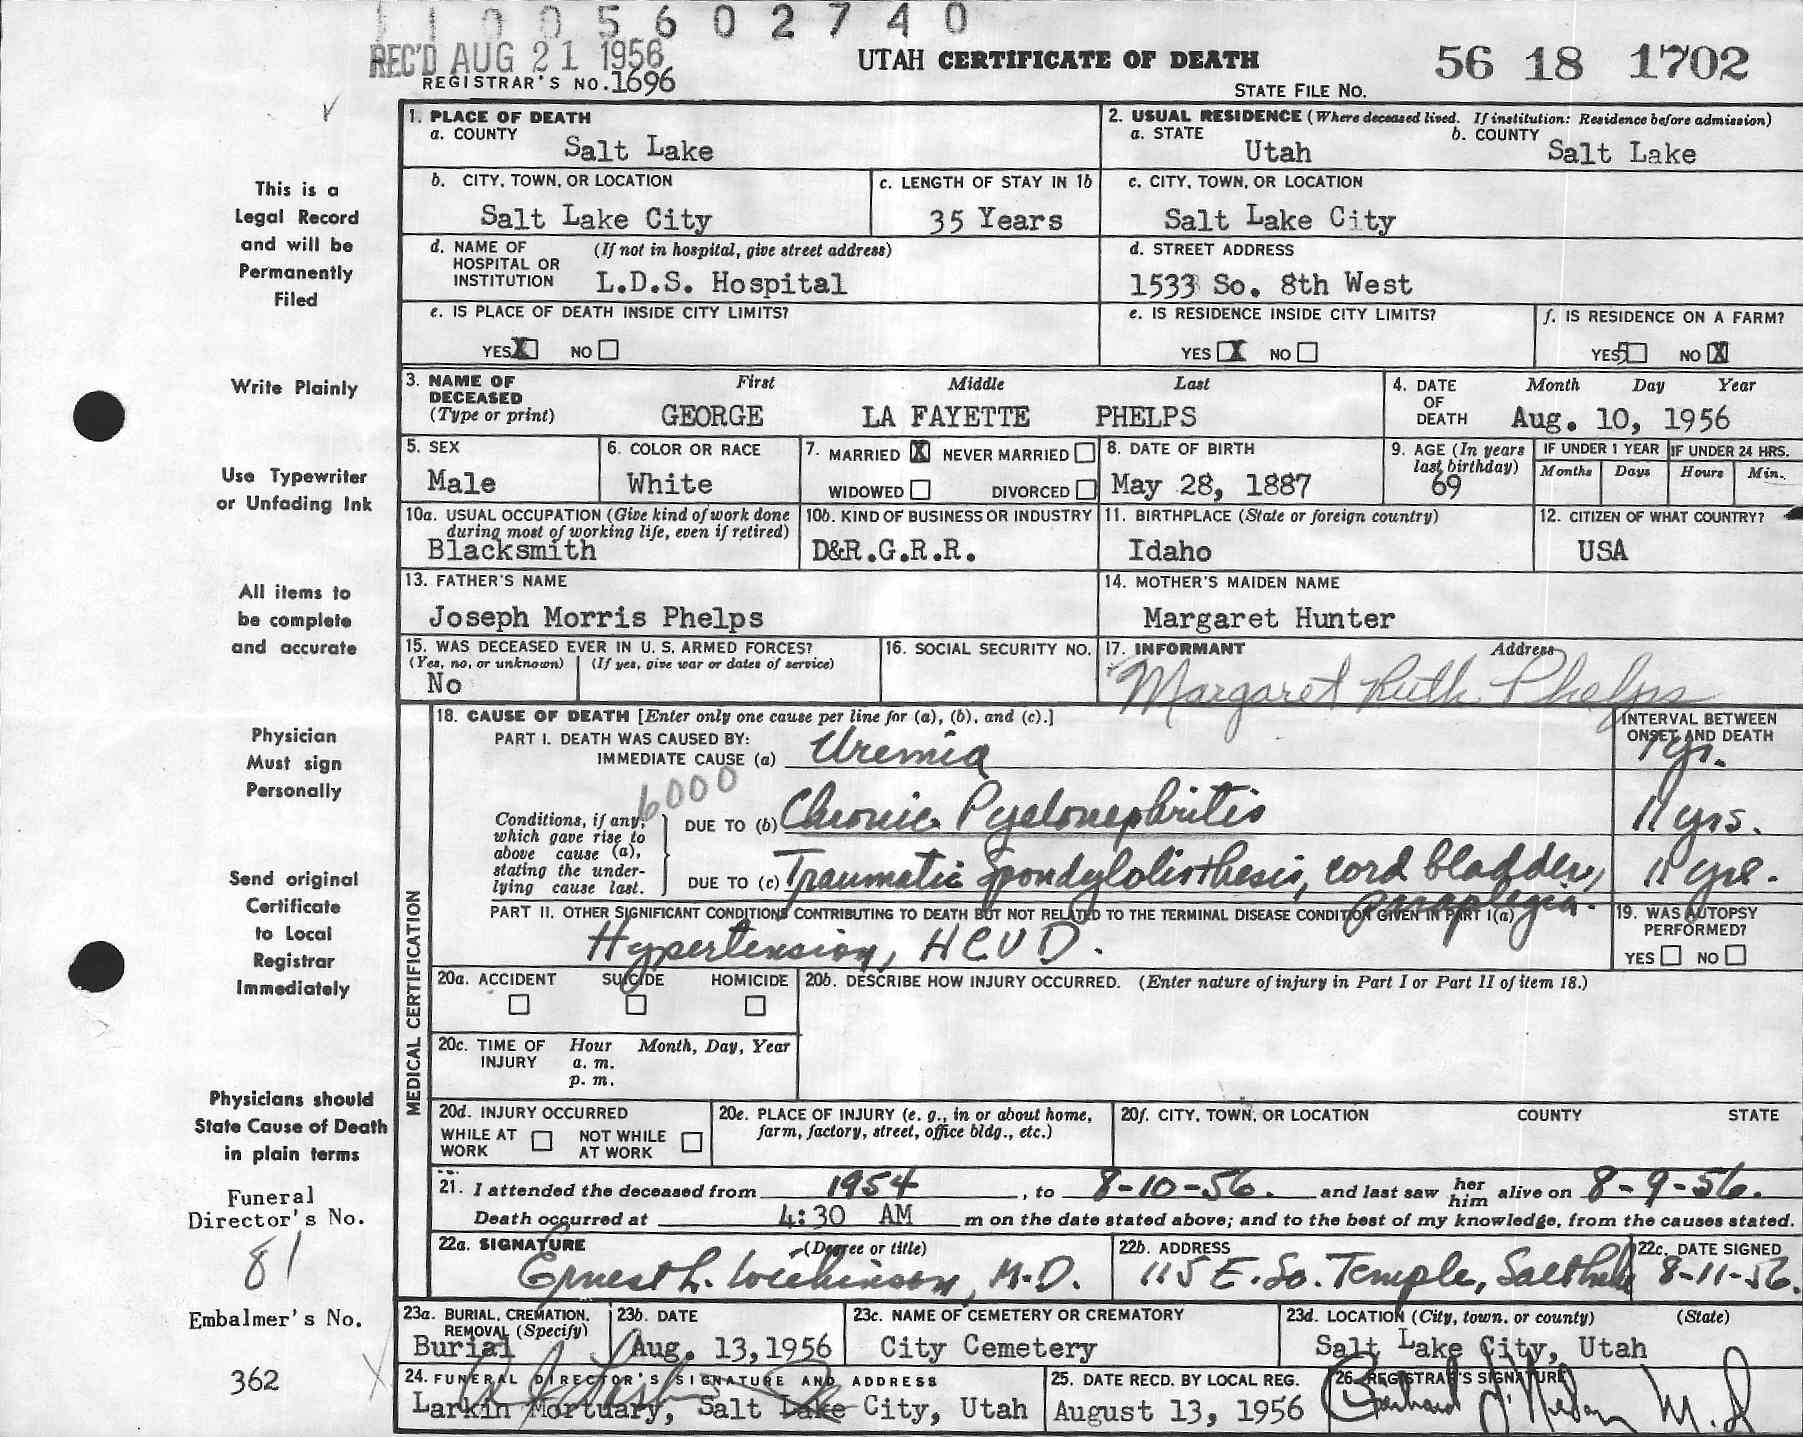 1 1 0 0 5 6 0 2 7 4 0
REC'D AUG 21 1956
REGISTRAR'S NO. 1696
UTAH CERTIFICATE OF DEATH
STATE FILE NO.
56 18 1702
1. PLACE OF DEATH
a. COUNTY
Salt Lake
2. USUAL RESIDENCE (Where deceased lived. If institution: Residence before admission)
a. STATE
Utah
b. COUNTY
Salt Lake
b. CITY, TOWN, OR LOCATION
Salt Lake City
c. LENGTH OF STAY IN 1b
35 Years
c. CITY, TOWN, OR LOCATION
Salt Lake City
d. NAME OF HOSPITAL OR INSTITUTION
(If not in hospital, give street address)
L.D.S. Hospital
d. STREET ADDRESS
1533 So. 8th West
e. IS PLACE OF DEATH INSIDE CITY LIMITS?
YES X NO
e. IS RESIDENCE INSIDE CITY LIMITS?
YES X NO
f. IS RESIDENCE ON A FARM?
YES NO X
3. NAME OF DECEASED
(Type or print)
First Middle Last
GEORGE LA FAYETTE PHELPS
4. DATE OF DEATH
Month Day Year
Aug. 10, 1956
5. SEX
Male
6. COLOR OR RACE
White
7. MARRIED X NEVER MARRIED
WIDOWED DIVORCED
8. DATE OF BIRTH
May 28, 1887
9. AGE (In years last birthday)
69
IF UNDER 1 YEAR
Months Days
IF UNDER 24 HRS.
Hours Min.
10a. USUAL OCCUPATION (Give kind of work done during most of working life, even if retired)
Blacksmith
10b. KIND OF BUSINESS OR INDUSTRY
D&R.G.R.R.
11. BIRTHPLACE (State or foreign country)
Idaho
12. CITIZEN OF WHAT COUNTRY?
USA
13. FATHER'S NAME
Joseph Morris Phelps
14. MOTHER'S MAIDEN NAME
Margaret Hunter
15. WAS DECEASED EVER IN U. S. ARMED FORCES?
(Yes, no, or unknown) (If yes, give war or dates of service)
No
16. SOCIAL SECURITY NO.
17. INFORMANT Address
Margaret Ruth Phelps
MEDICAL CERTIFICATION
18. CAUSE OF DEATH [Enter only one cause per line for (a), (b), and (c).]
INTERVAL BETWEEN ONSET AND DEATH
PART I. DEATH WAS CAUSED BY:
IMMEDIATE CAUSE (a) Uremia
1 yr.
6000
Conditions, if any, which gave rise to above cause (a), stating the underlying cause last.
DUE TO (b) Chronic Pyelonephritis
11 yrs.
DUE TO (c) Traumatic Spondylolisthesis, cord bladder, paraplegia.
11 yrs.
PART II. OTHER SIGNIFICANT CONDITIONS CONTRIBUTING TO DEATH BUT NOT RELATED TO THE TERMINAL DISEASE CONDITION GIVEN IN PART I(a)
Hypertension, HCVD.
19. WAS AUTOPSY PERFORMED?
YES NO
20a. ACCIDENT SUICIDE HOMICIDE
20b. DESCRIBE HOW INJURY OCCURRED. (Enter nature of injury in Part I or Part II of item 18.)
20c. TIME OF INJURY
Hour Month, Day, Year
a. m.
p. m.
20d. INJURY OCCURRED
WHILE AT WORK NOT WHILE AT WORK
20e. PLACE OF INJURY (e. g., in or about home, farm, factory, street, office bldg., etc.)
20f. CITY, TOWN, OR LOCATION COUNTY STATE
21. I attended the deceased from 1954, to 8-10-56. and last saw her him alive on 8-9-56.
Death occurred at 4:30 AM m on the date stated above; and to the best of my knowledge, from the causes stated.
22a. SIGNATURE (Degree or title)
Ernest L. Wilkinson, M.D.
22b. ADDRESS
115 E. So. Temple,
22c. DATE SIGNED
8-11-56.
23a. BURIAL, CREMATION, REMOVAL (Specify)
Burial
23b. DATE
Aug. 13, 1956
23c. NAME OF CEMETERY OR CREMATORY
City Cemetery
23d. LOCATION (City, town, or county) (State)
Salt Lake City, Utah
24. FUNERAL DIRECTOR'S SIGNATURE AND ADDRESS
Larkin Mortuary, Salt Lake City, Utah
25. DATE RECD. BY LOCAL REG.
August 13, 1956
26. REGISTRAR'S SIGNATURE
This is a
Legal Record
and will be
Permanently
Filed
Write Plainly
Use Typewriter
or Unfading Ink
All items to
be complete
and accurate
Physician
Must sign
Personally
Send original
Certificate
to Local
Registrar
Immediately
Physicians should
State Cause of Death
in plain terms
Funeral
Director's No.
81
Embalmer's No.
362